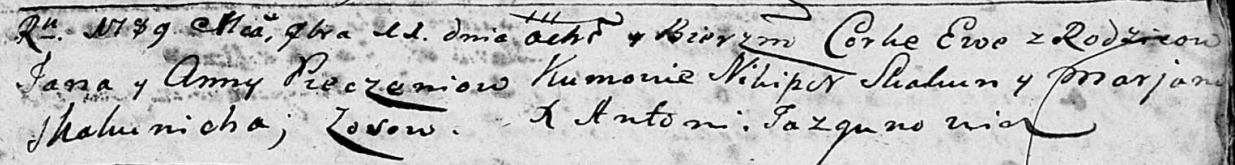 Rŭ. 1789 Mca, 9bra 11. dnia ochŕ y Bierzm Corke Ewe z Rodzicow
Jana y Anny Pieczeniow Kumowie Nikiper Skakun y Marjana
Skakunicha; Zosow. X Antoni. Jazgunowicz